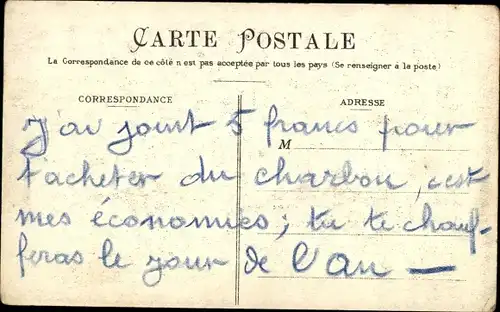 CARTE POSTALE
La Correspondance de ce côté n est pas acceptée par tous les pays (Se renseigner à la poste)
CORRESPONDANCE
ADRESSE
M
J'ai joint 5 francs pour
t'acheter du charbon, c'est
mes économies; tu te chauf-
feras le jour de l'an —